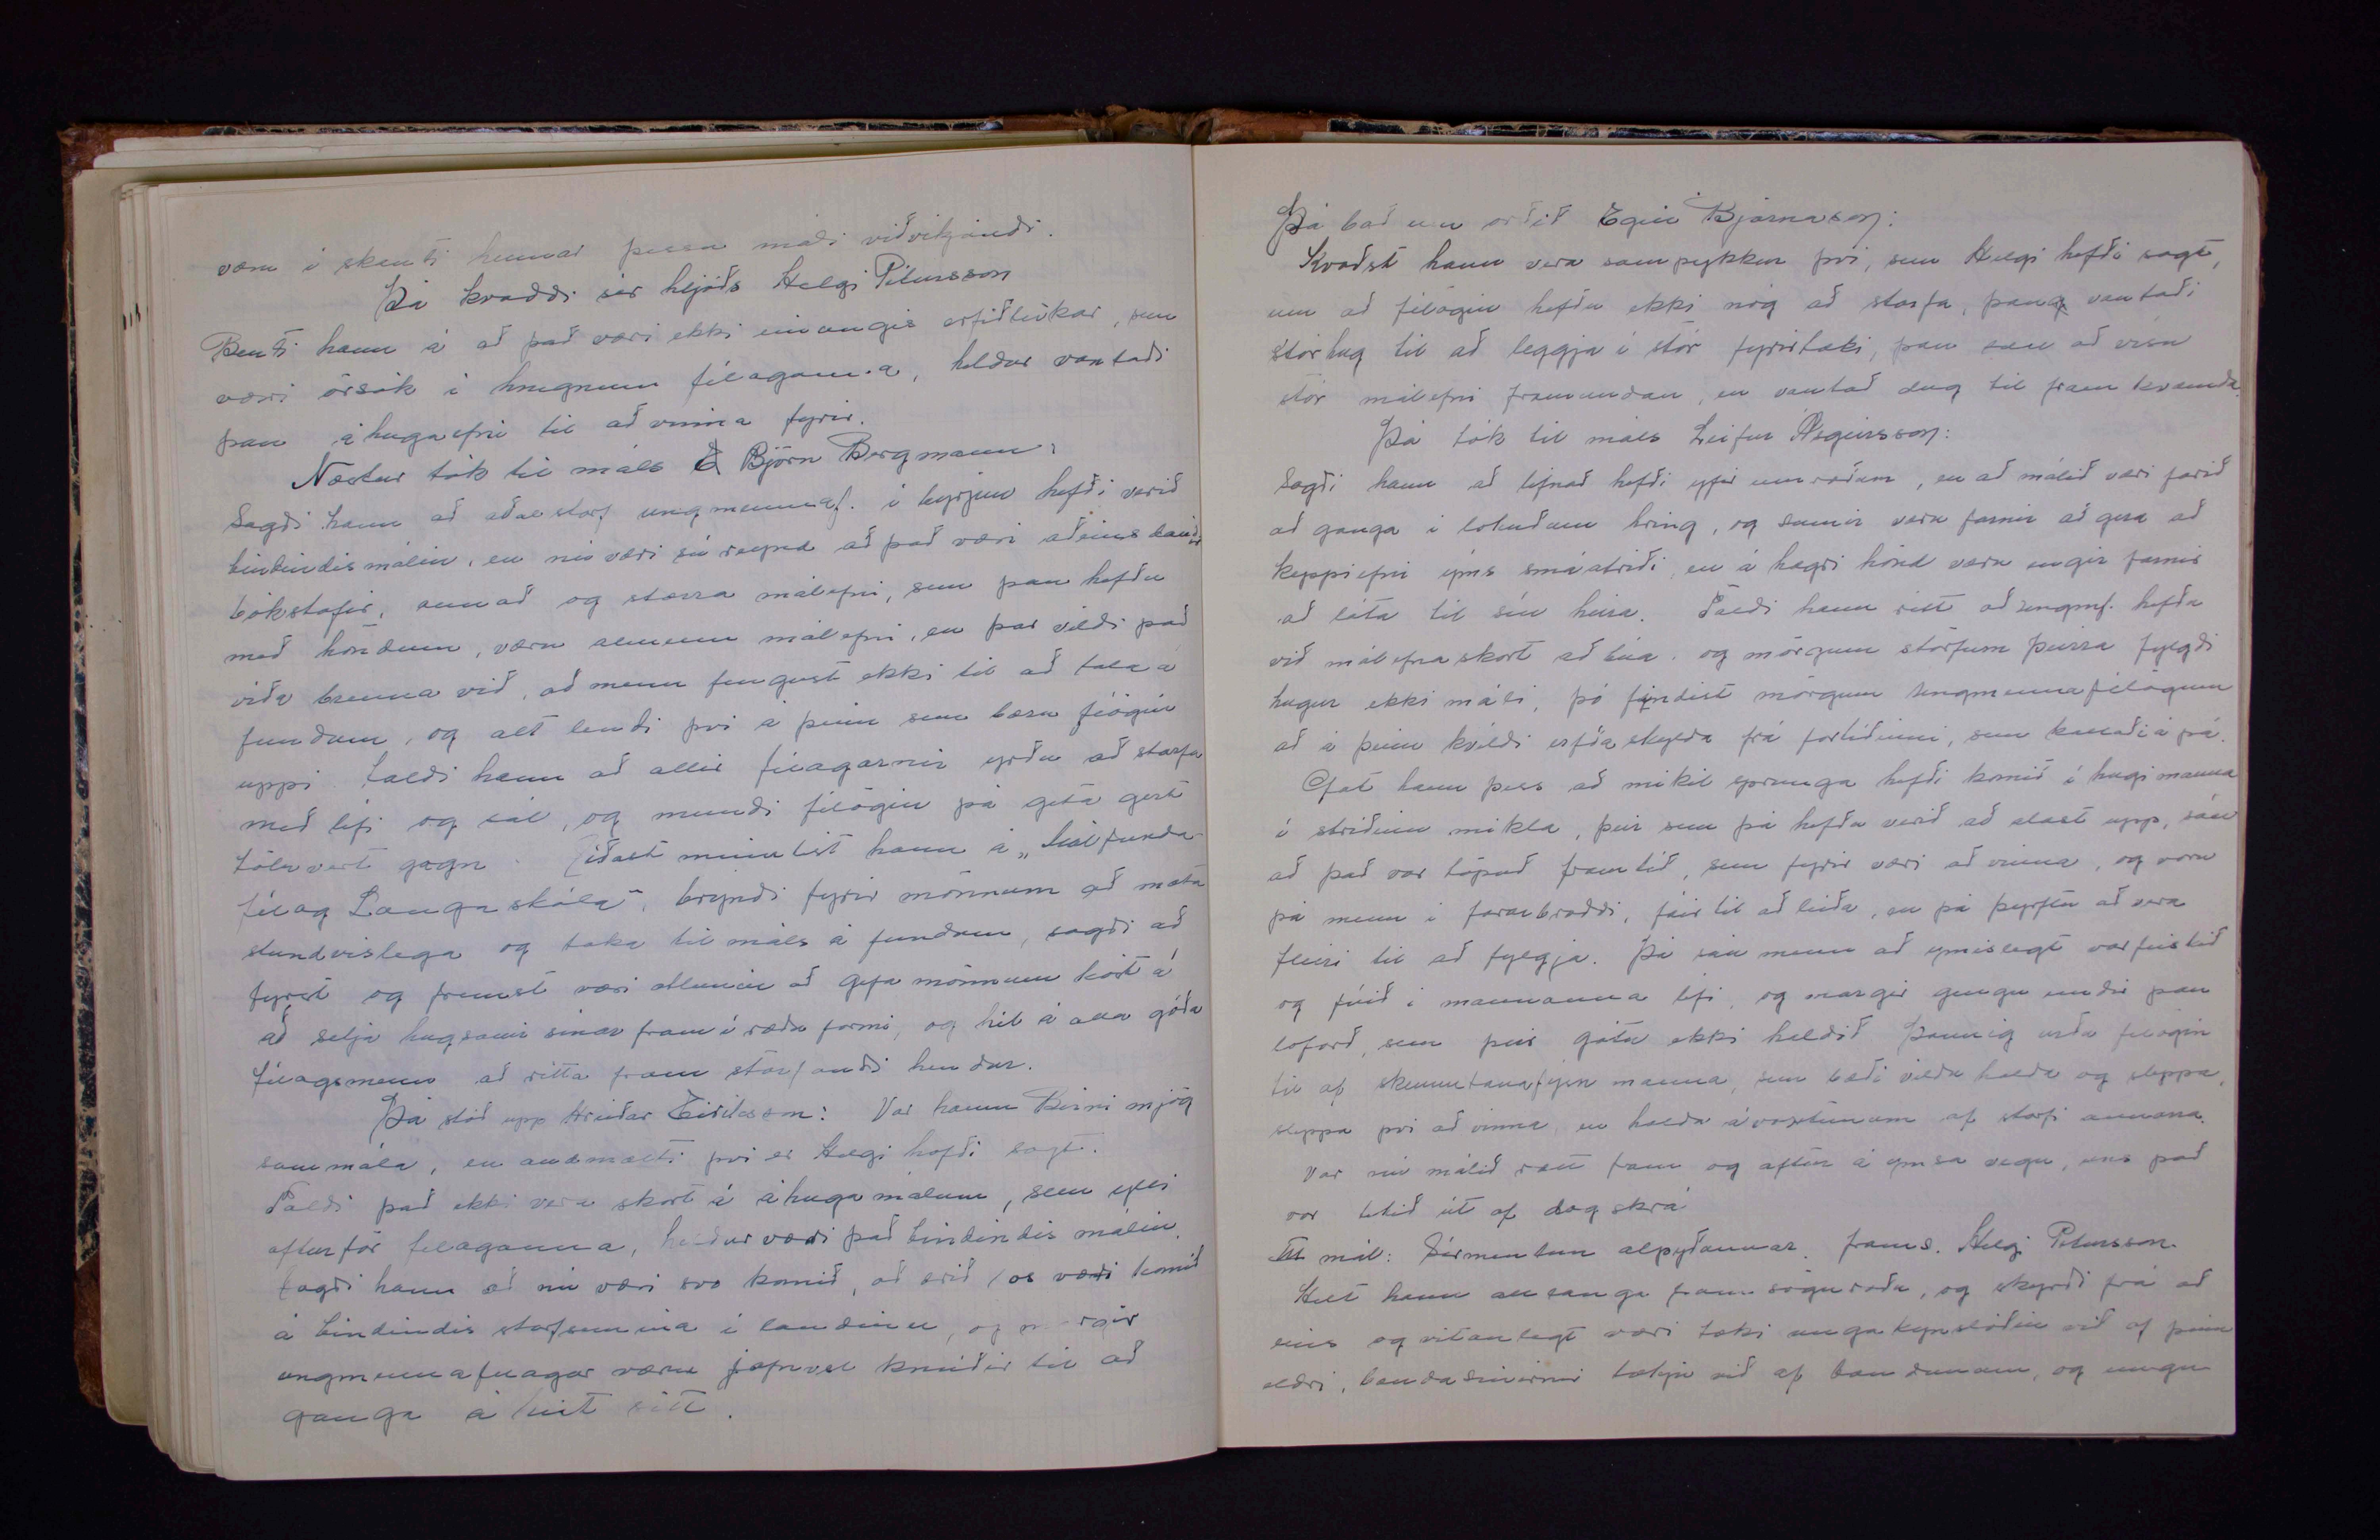 væru í skauti hennar þessu máli viðvíkjandi.
Þá kvaddi sér hljóðs Helgi Pétursson
Benti hann á að það væri ekki einungis erfiðleikar, sem
væri örsök í hnegnum félaganna, heldur vantaði
þau áhugaefni til að vinna fyrir.
Næstur tók til máls Björn Bergmann:
Sagði hann að aðal starf ungmennaf. í byrjun hefði verið
bindindismálin, en nú væri sú reynd að það væri aðeins dauðir
bókstafir, annað og stærra málefni, sem þau hefðu
með höndum, væru almenn málefni, en þar vildi það
víða brenna við, að menn fengust ekki til að tala á
fundum, og alt lendi því á þeim sem bæru félögin
uppi. Taldi hann að allir félagarnir yrðu að starfa
með lífi og sál, og mundi félögin þá geta gert
töluvert gagn. Síðast mintist hann á „Málfunda-
félag Laugaskóla", brýndi fyrir mönnum að mæta
stundvíslega og taka til máls á fundum, sagði að
fyrst og fremst væri ætlunin að gefa mönnum kost á
að setja hugsanir sínar fram í ræðu formi, og hét á alla góða
félagsmenn að rétta fram starfandi hendur.
Þá stóð upp Hreiðar Eiríksson: Var hann Birni mjög
sammála, en andmælti því er Helgi hafði sagt.
Taldi það ekki vera skort á áhugamálum, sem ylli
afturför félaganna, heldur væri það bindindis málin.
Sagði hann að nú væri svo komið, að ærið los væri komið
á bindindis starfsemina í landinu, og margir
ungmennafélagar væru jafnvel knúðir til að
ganga á heit sitt.
Þá bað um orðið Egill Bjarnason:
Kvaðst hann vera samþykkur því, sem Helgi hefði sagt,
um að félögin hefðu ekki nóg að starfa, þaug vantaði
stórhug til að leggja í stór fyrirtæki, þau sæu að vísu
stór málefni framundan, en vantað dug til framkvæmda.
Þá tók til máls Leifur Ásgeirsson:
Sagði hann að lifnað hefði yfir umræðum, en að málið væri farið
að ganga í lokuðum hring, og sumir væru farnir að gera að
keppiefni ýms smáatriði, en á hægri hönd væru engir farnir
að láta til sín heira. Taldi hann rétt að ungmf. hefðu
við málefnaskort að búa, og mörgum störfum þeirra fylgdi
hugur ekki máli, þó findist mörgum Ungmennafélögum
að á þeim hvíldi erfða skylda frá fortíðinni, sem kallaði á þá.
Gat hann þess að mikil sprunga hefði komið í hugi manna
í stríðinu mikla, þeir sem þá hefðu verið að alast upp, sáu
að það var töpuð framtíð, sem fyrir væri að vinna, og voru
þá menn í fararbroddi, fáir til að leiða, en þá þyrftu að vera
fleiri til að fylgja. Þá sáu menn að ymislegt var feiskið
og fúið í mannanna lífi, og margir gengu undir þau
loforð, sem þeir gátu ekki haldið. Þannig urðu félögin
til af skemmtanafýsn manna, sem bæði vildu halda og sleppa,
sleppa því að vinna, en halda ávöxtunum af starfi annara.
Var nú málið rætt fram og aftur á ymsa vegu, uns það
var tekið út af dagskrá
mál: Sérmentun alþýðunnar. frams. Helgi Pétursson.
Hélt hann all langa framsöguræðu, og skyrði frá að
eins og vitanlegt væri tæki unga kynslóðin við af þeim
eldri, bændasinirnir tækju við af bændunum, og ungu